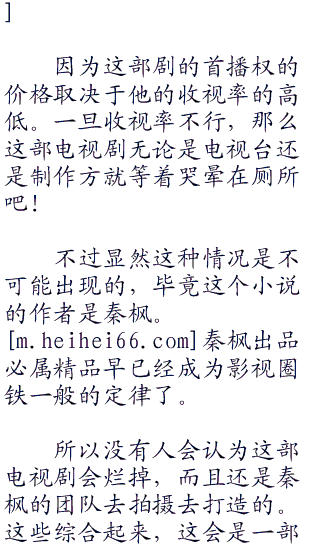 ]
因为这部剧的首播权的
价格取决于他的收视率的高
低。一旦收视率不行，那么
这部电视剧无论是电视台还
是制作方就等着哭晕在厕所
吧！
不过显然这种情况是不
可能出现的，毕竟这个小说
的作者是秦枫。
[m.heihei66.com]秦枫出品
必属精品早已经成为影视圈
铁一般的定律了。
所以没有人会认为这部
电视剧会烂掉，而且还是秦
枫的团队去拍摄去打造的。
这些综合起来，这会是一部